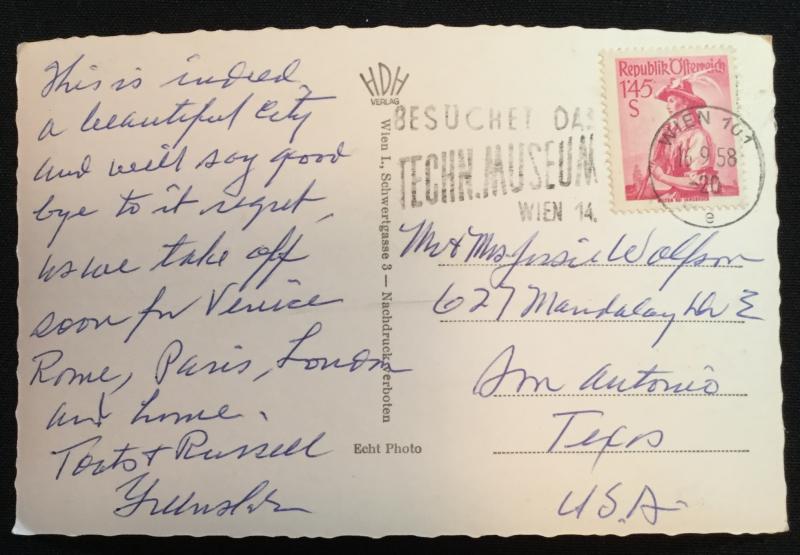 This is indeed
a beautiful city
and will say good
bye to it regret,
as we take off
soon for Venice
Rome, Paris, London
and home.
Toots + Russell
HDH
VERLAG
Wien I., Schwertgasse 3 — Nachdruck verboten
Echt Photo
BESUCHET DAS
TECHN. MUSEUM
WIEN 14.
Republik Österreich
1'45
S
WIEN 101
16. 9. 58
-20
e
Mr + Mrs Jessie Wolfson
627 Mandalay Dr E
San Antonio
Texas
U.S.A.